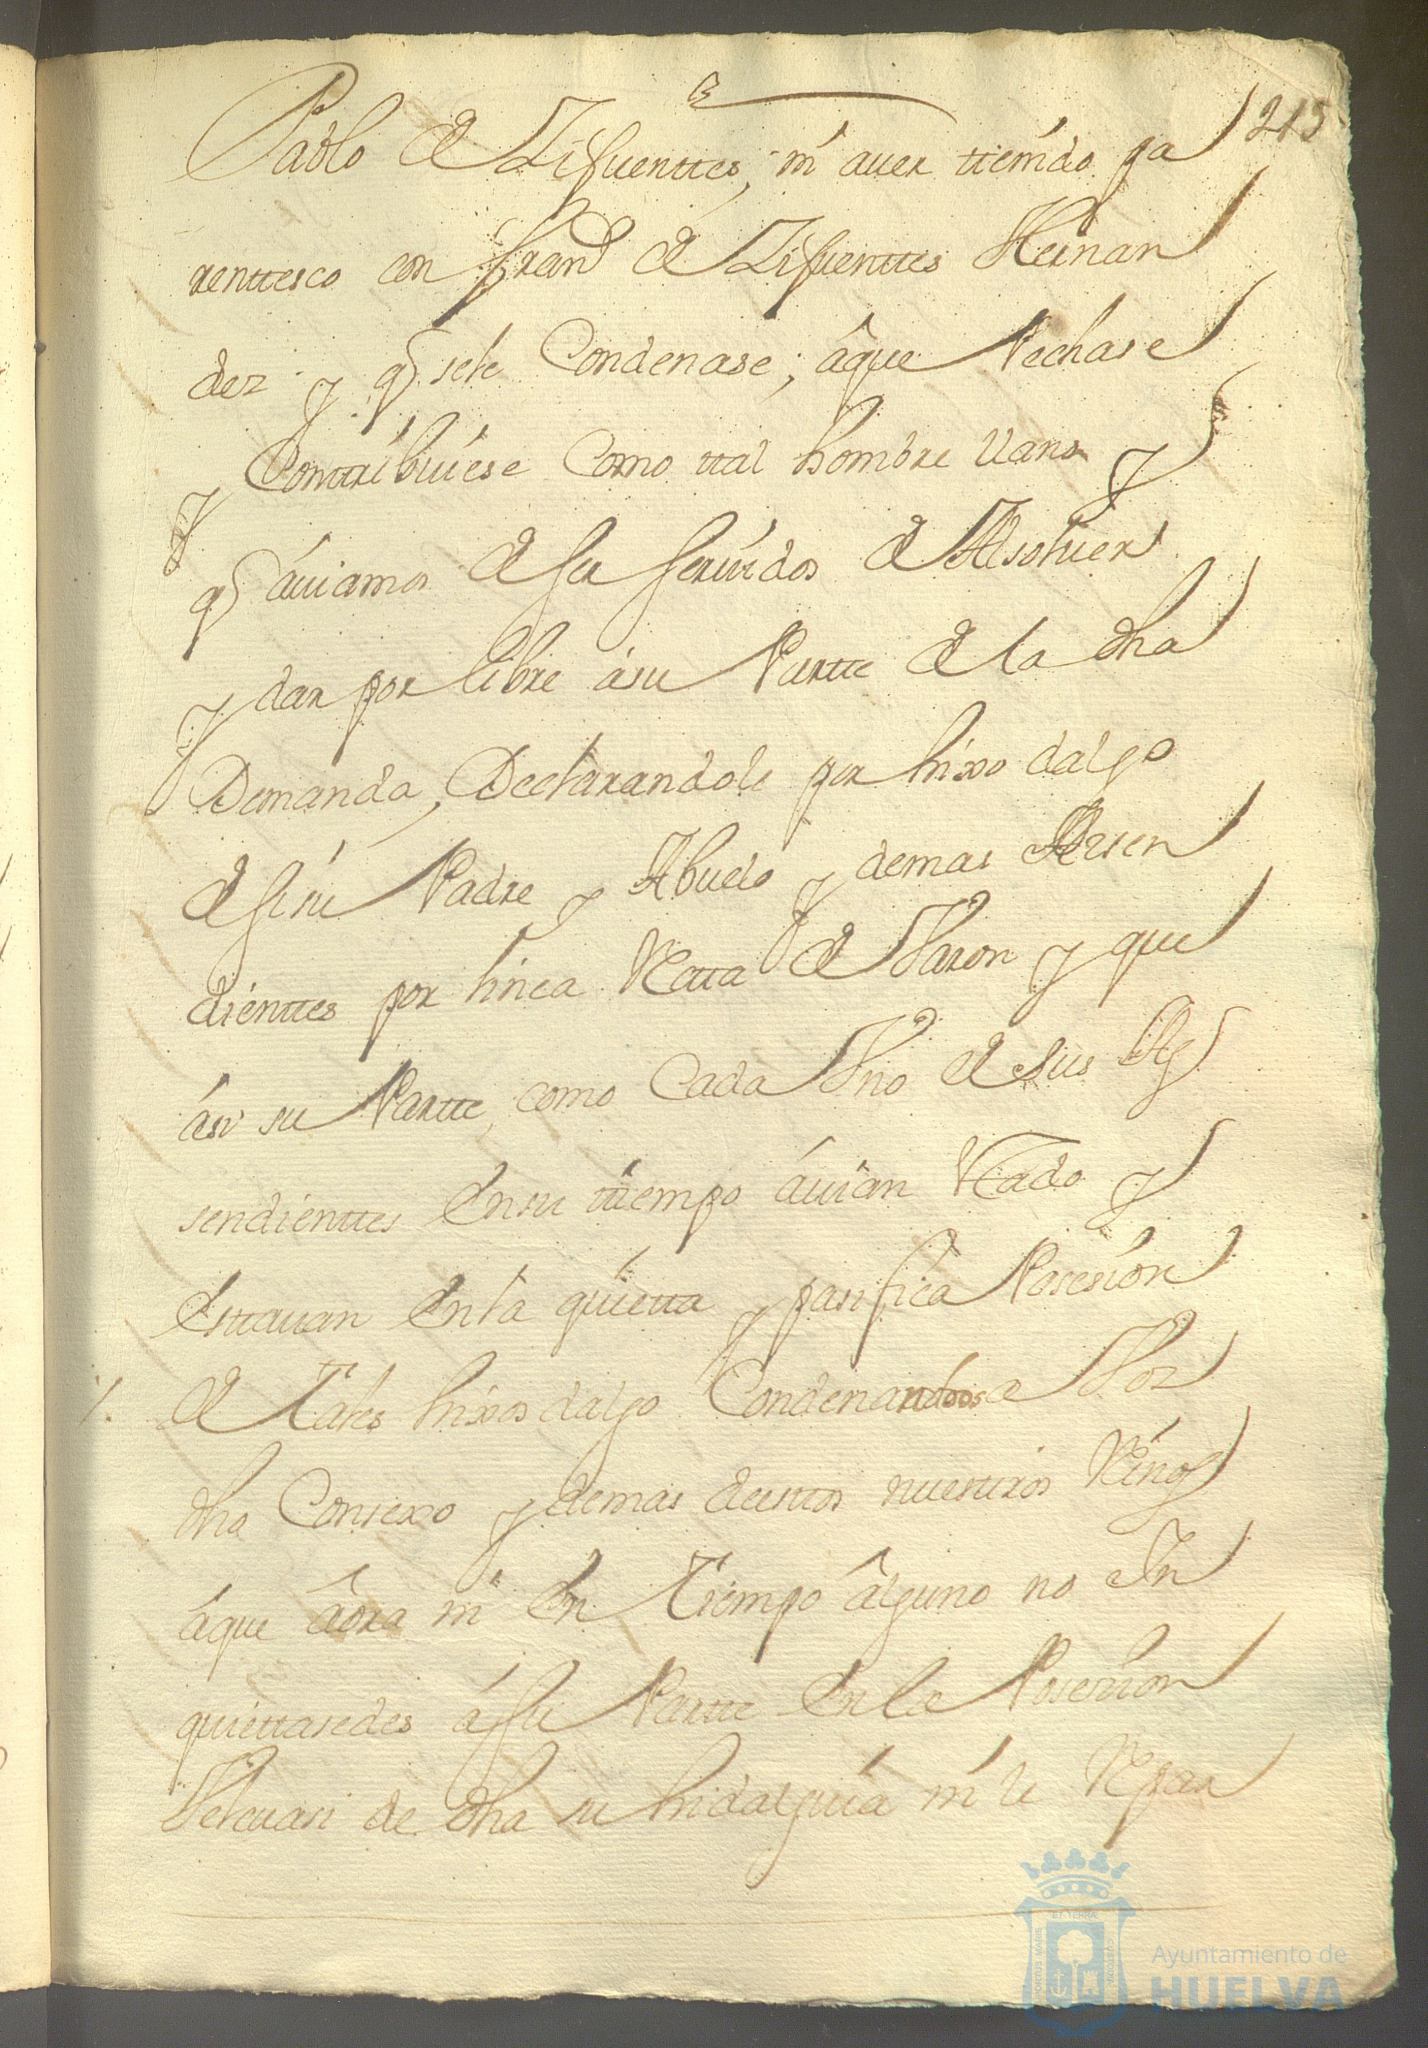 215
Pablo de Zifuenttes, ni auer ttenido pa
renttesco con Fran.co de Zifuenttes Hernan
dez y q sele Condenase; áque Pechase
y Conttribúiese Como ttal hombre llano y
q áuiamos de ser seruidos de Absoluer
y dar por libre ásu Partte de la dha
Demanda, Declarandole por hixo dalgo
de si su Padre y Abuelo y demas Aszen
dienttes por linea Rtta de Varon y que
ási su Partte, como Cada Vno de sus As
sendienttes En su ttiempo áuian esttado y
Esttauan En la quietta y pasifica Posesion
de Tales hixos dalgo Condenandosea Vos
dho Consexo y demas desttos nuesttros Rinos
áque áora ni En Tiempo álguno no In
quiettasedes á su Partte En la Posesion
Velcuasi de dha su hidalguia ni le Repar
Ayuntamiento de
HUELVA